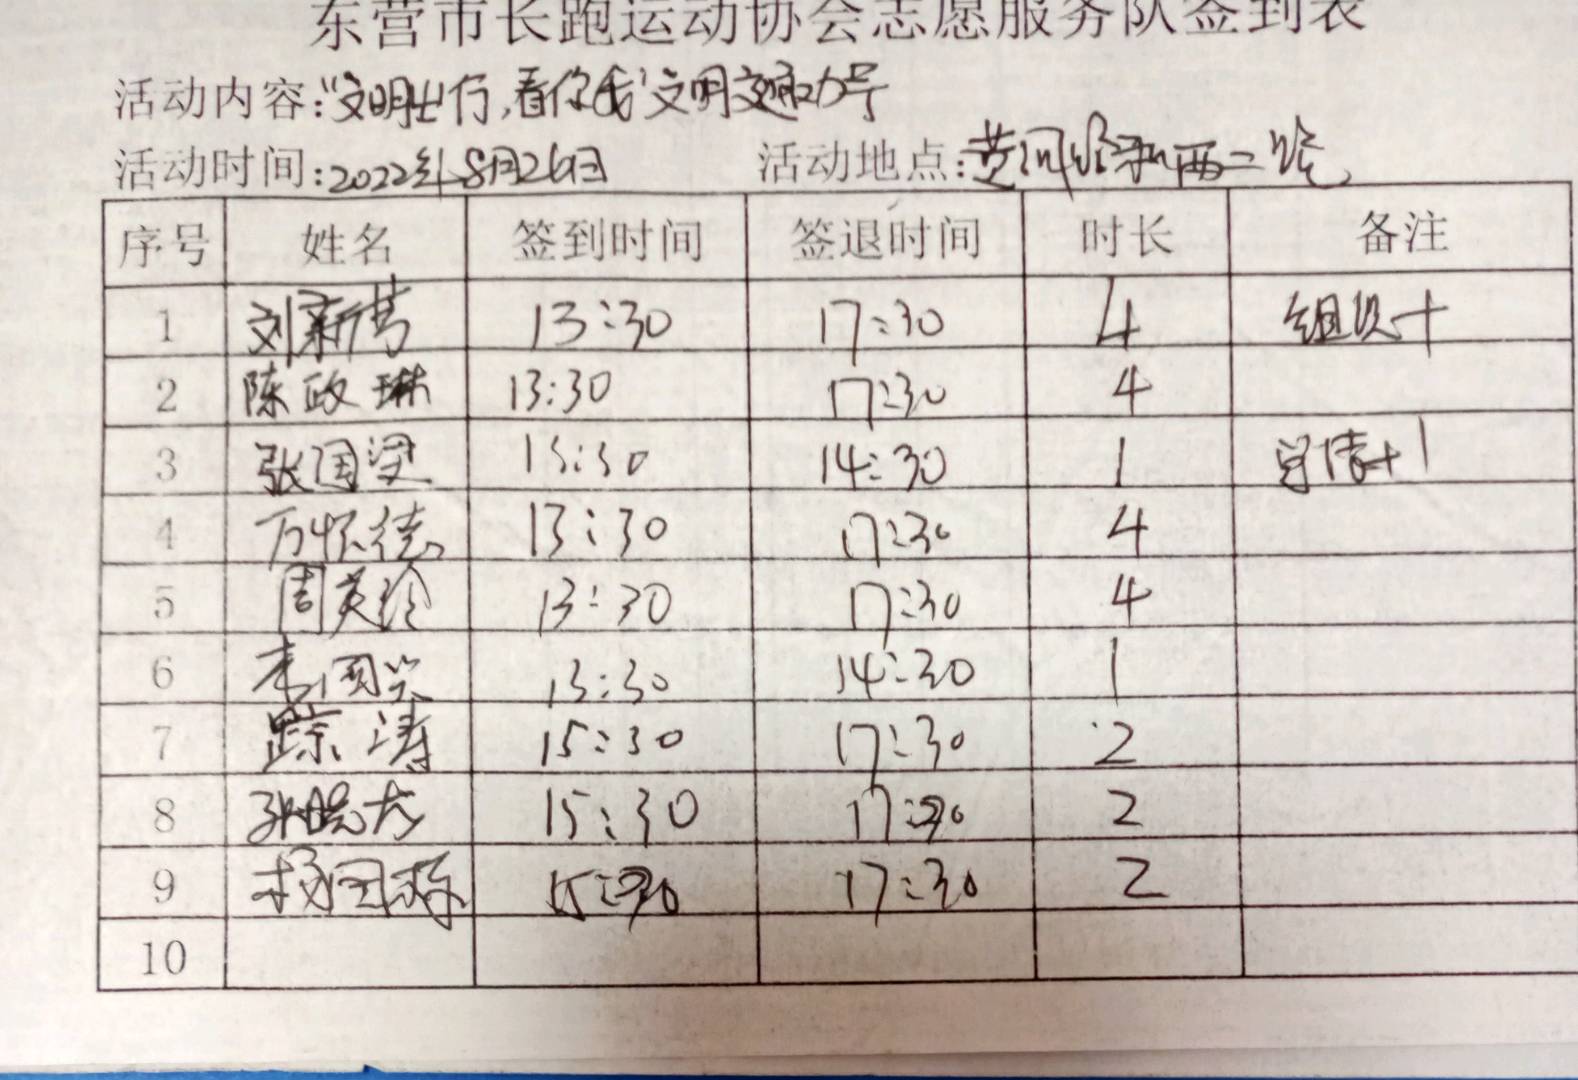 东营市长跑运动协会志愿服务队签到表
活动内容:“文明出行,看你我”文明交通劝导
活动时间:2022年8月26日 活动地点:黄河路和西二路
序号 姓名 签到时间 签退时间 时长 备注
1 刘新 13:30 17:30 4 组织+
2 陈政琳 13:30 17:30 4
3 张国梁 13:30 14:30 1 宣传+1
4 万怀德 13:30 17:30 4
5 周英玲 13:30 17:30 4
6 李国 13:30 14:30 1
7 踪涛 15:30 17:30 2
8 张晓 15:30 17:30 2
9 杨国栋 15:30 17:30 2
10